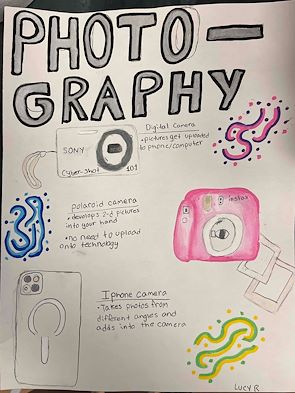 PHOTO-
GRAPHY
Digital Camera
• pictures get uploaded
to phone/computer
SONY
Cyber-shot
polaroid camera
• develops 2-d pictures
into your hand
• no need to upload
onto technology
instax
Iphone camera
• Takes photos from
different angles and
adds into the camera
Lucy R